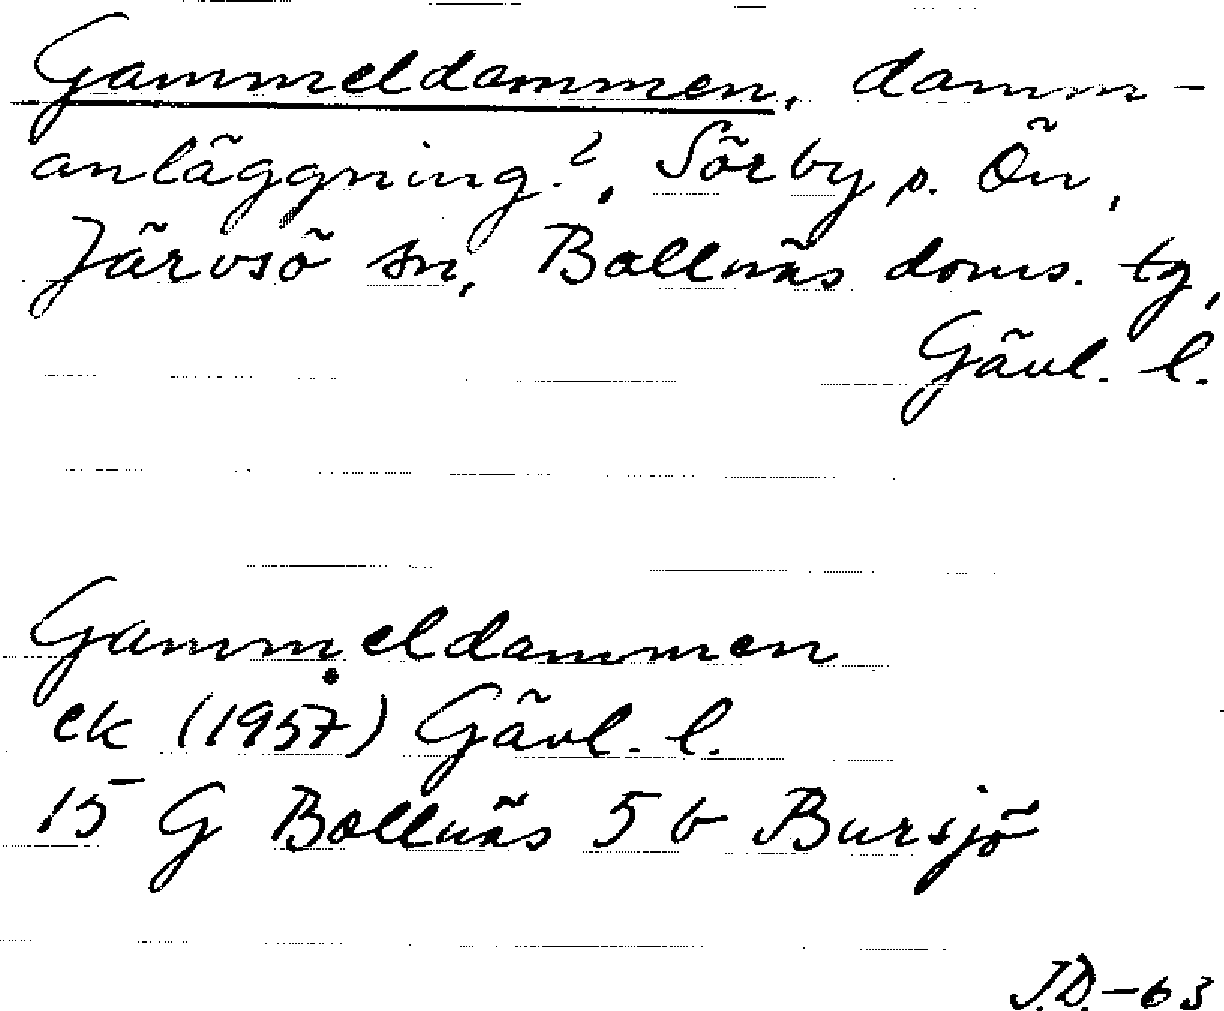 Gammeldammen, damm-
anläggning?, Sörby p. Ön,
Järvsö sn, Bollnäs doms. tg,
Gävl. l.
Gammeldammen
ek (1957) Gävl. l.
15 G Bollnäs 5 b Bursjö
J.D.-63